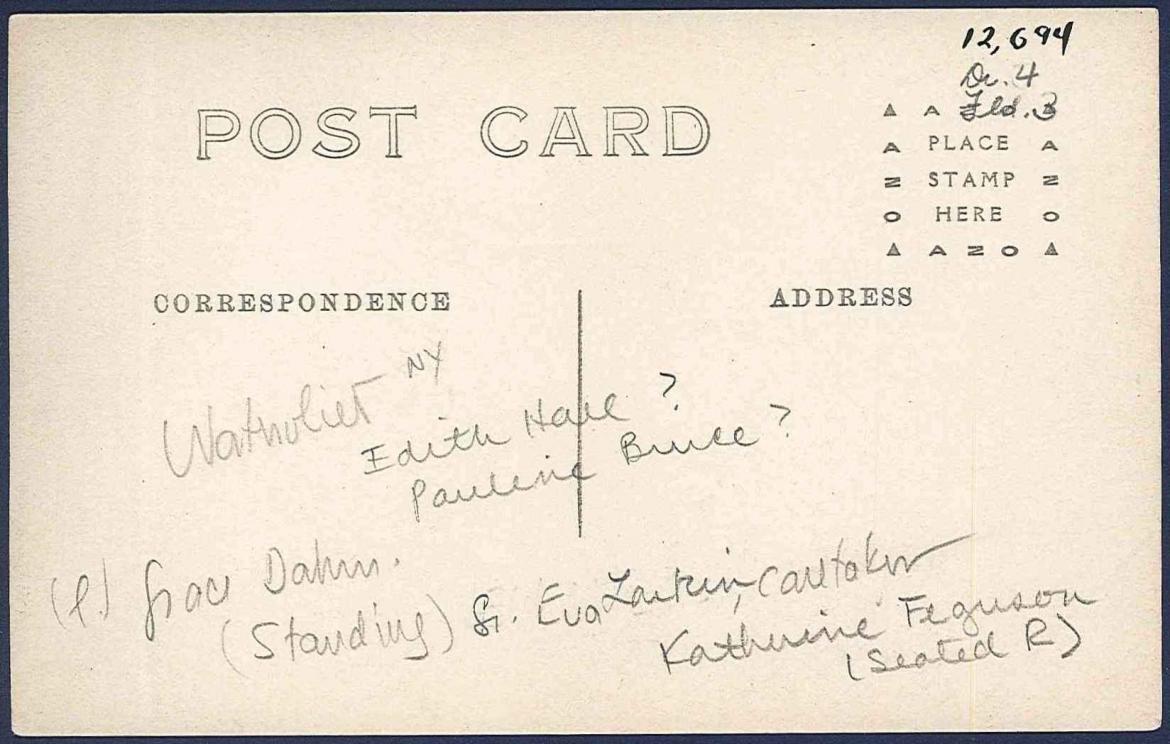 12,694
Dr. 4
Fld. 3
POST CARD
A
PLACE
A A
STAMP
Z Z
HERE
O O
A Z O
CORRESPONDENCE
ADDRESS
NY
Watervliet
Edith Hall ?
Pauline Bruce ?
(l) Grace Dahm.
(Standing) Sr. Eva Larkin, caretaker
Katherine Ferguson
(Seated R)